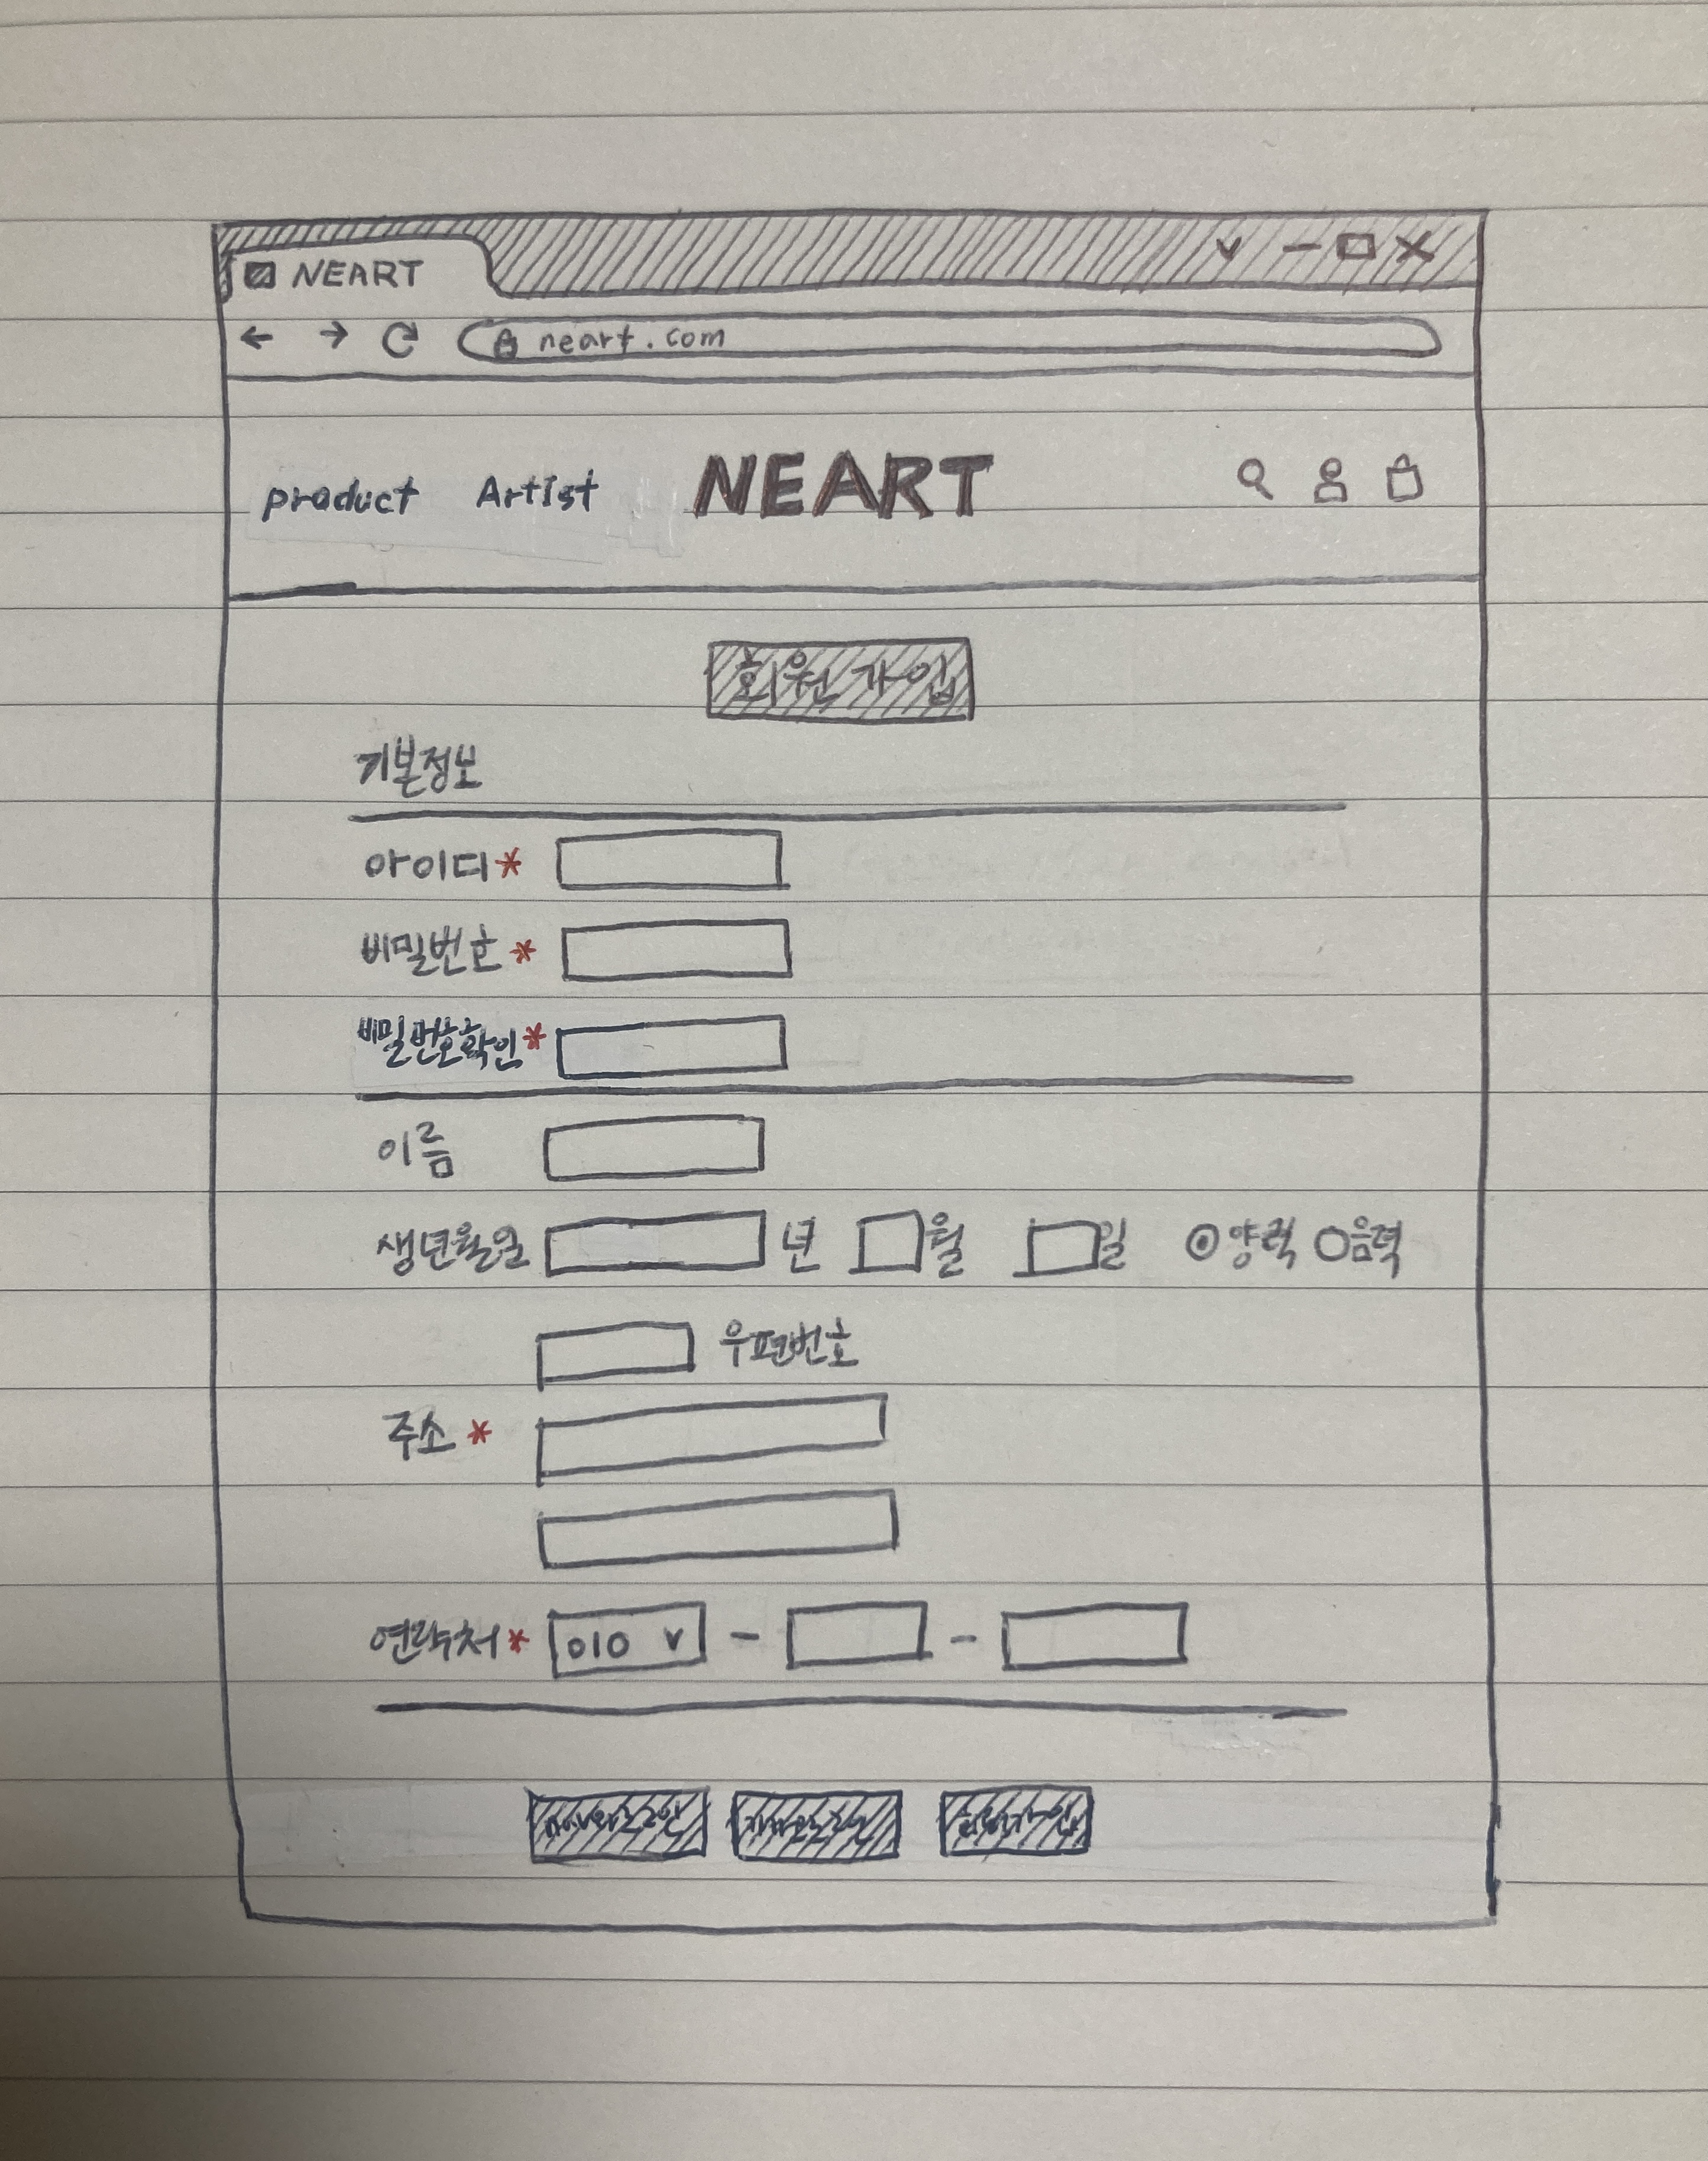 NEART
neart.com
product Artist NEART
회원가입
기본정보
아이디*
비밀번호*
비밀번호확인*
이름
생년월일 년 월 일 양력 음력
우편번호
주소*
연락처* 010 v - -
회원가입